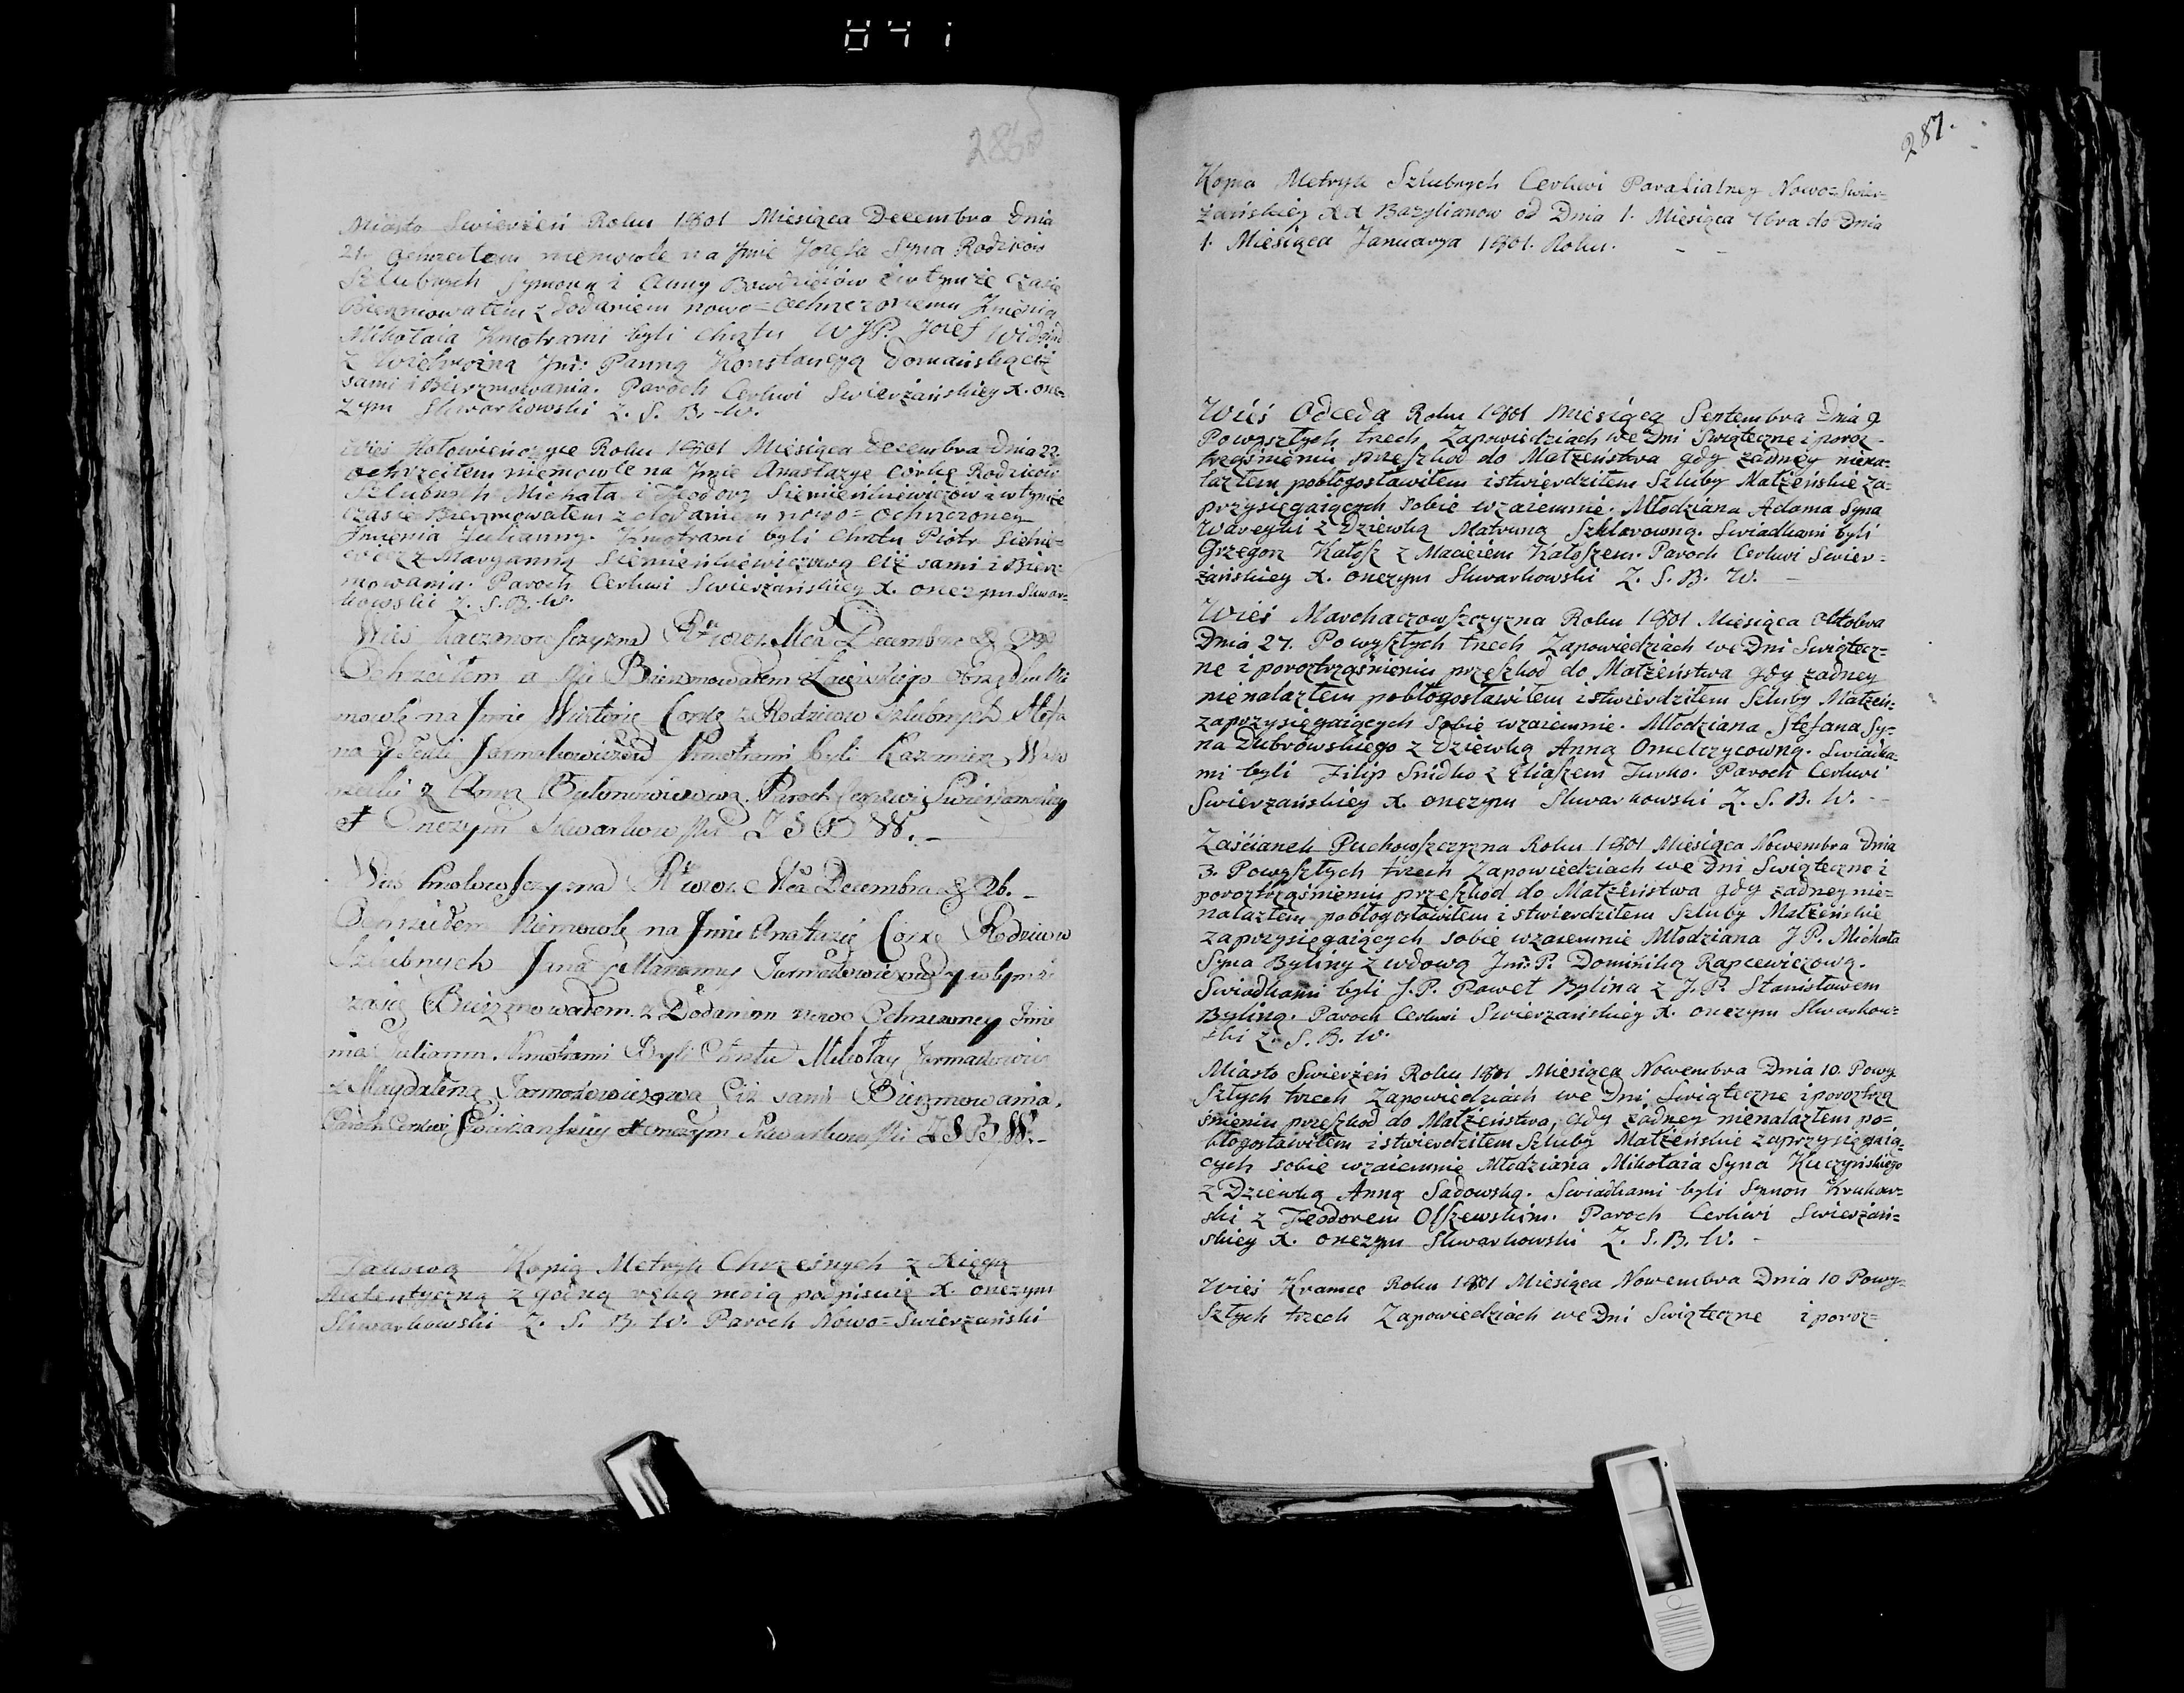 841
286
Miasto Swierżeń Roku 1801 Miesiąca Decembra Dnia
21. ochrzciłem niemowle na Jmie Jozefa Syna Rodzicow
Szlubnych Symona i Anny i w tymże czasie
Bierzmowałem z dodaniem nowo=ochrzczonemu Jmienia
Mikołaia Kmotrami byli chrztu WJP. Jozef
z Wielmożną Jm: Panną Konstancyą Domańską ciż
sami i Bierzmowania. Paroch Cerkwi Swierżańskiey X. one=
zym Skwarkowski Z. S. B. W.
Wieś Kołowieńczyce Roku 1801 Miesiąca Decembra Dnia 22.
ochrzciłem niemowle na Jmie Anastazye Corkę Rodzicow
Szlubnych Michała i Teodory Siemieńkiewiczow i w tymże
czasie Bierzmowałem z dodaniem nowo=ochrzczoney
Jmienia Julianny. Kmotrami byli chrztu Piotr
z Maryanną Siemieńkiewiczową ciż sami i Bierz=
mowania. Paroch Cerkwi Swierżańskiey X. onezym Skwar=
kowski Z. S. B. W.
Wieś Kaczmorszczyzna Rku 1801. Mca Decembra
Ochrzciłem a Bierzmowałem Łacińskiego Obrządku Nie
mowle na Jmie Wiktorię Corkę z Rodzicow szlubnych Stefa
na y Tekli Jarmakowiczow Kmotrami byli Kazmierz
z Anną Paroch Cerkwi Swierżanskiey
X Onezym Skwarkowski Z S B W.
Wieś Rku 1801. Mca Decembra d. 26.
Ochrzciłem Niemowle na Jmie Anastazie Corkę Rodzicow
Szlubnych Jana y Maryanny Jarmakowiczow y w tymże
czasie Bierzmowałem z Dodaniem nowo Ochrzczoney Jmie
nia Julianny. Kmotrami Byli Chrztu Mikołay Jarmakowicz
z Magdaleną Jarmakowiczową Ciż sami Bierzmowania.
Paroch Cerkwi Swierżanskiey X Onezym Skwarkowski Z S B W.
Takową Kopią Metryk Chrzesnych z Xięgą
Autentyczną zgodną ręką moią podpisuię X. onezym
Skwarkowski Z. S. B. W. Paroch Nowo=Swierżański
287.
Kopia Metryk Szlubnych Cerkwi Parafialney Nowo=Swier=
żańskiey XX Bazylianow od Dnia 1. Miesiąca 7bra do Dnia
1. Miesiąca Januarya 1801. Roku.
Wieś Odceda Roku 1801 Miesiąca Septembra Dnia 9
Powyszłych trzech Zapowiedziach we Dni Swiąteczne i poroz=
trząśnieniu przeszkod do Małżeństwa gdy żadney niena=
lazłem pobłogosławiłem i stwierdziłem Szluby Małżeńskie za=
przysięgaiących sobie wzaiemnie. Młodziana Adama Syna
Wareyki z Dziewką Matruną Szklarowną. Swiadkami byli
Grzegorz Kałosz z Macieiem Kałoszem. Paroch Cerkwi Swier=
żańskiey X. onezym Skwarkowski Z. S. B. W.
Wieś Marchaczowszczyzna Roku 1801 Miesiąca oktobra
Dnia 27. Powyszłych trzech Zapowiedziach we Dni Swiątecz=
ne i poroztrząśnieniu przeszkod do Małżeństwa gdy żadney
nienalazłem pobłogosławiłem i stwierdziłem Szluby Małżeń:
zaprzysięgaiących sobie wzaiemnie. Młodziana Stefana Sy=
na Dubrowskiego z Dziewką Anną Omelczycowną. Swiadka=
mi byli Filip Snidko z Eliaszem Jurko. Paroch Cerkwi
Swierżańskiey X. onezym Skwarkowski Z. S. B. W.
Zaścianek Puchowszczyzna Roku 1801 Miesiąca Nowembra Dnia
3. Powyszłych trzech Zapowiedziach we Dni Swiąteczne i
poroztrząśnieniu przeszkod do Małżeństwa gdy żadney nie=
nalazłem pobłogosławiłem i stwierdziłem Szluby Małżeńskie
zaprzysięgaiących sobie wzaiemnie Młodziana JP. Michała
Syna Byliny z wdową Jm:P. Dominiką Rapcewiczową.
Swiadkami byli J.P. Paweł Bylina z J.P. Stanisławem
Byliną. Paroch Cerkwi Swierżańskiey X. onezym Skwarkow=
ski Z. S. B. W.
Miasto Swierżeń Roku 1801 Miesiąca Nowembra Dnia 10. Powy
szłych trzech Zapowiedziach we Dni Swiąteczne i poroztrzą
śnieniu przeszkod do Małżeństwa, gdy żadney nienalazłem po=
błogosławiłem i stwierdziłem Szluby Małżeńskie zaprzysięgaią=
cych sobie wzaiemnie Młodziana Mikołaia Syna Kuczyńskiego
z Dziewką Anną Sadowską. Swiadkami byli Symon Krukow=
ski z Teodorem Olszewskim. Paroch Cerkwi Swierżań=
skiey X. onezym Skwarkowski Z. S. B. W.
Wieś Kramce Roku 1801 Miesiąca Nowembra Dnia 10 Powy=
szłych trzech Zapowiedziach we Dni Swiąteczne i poroz=